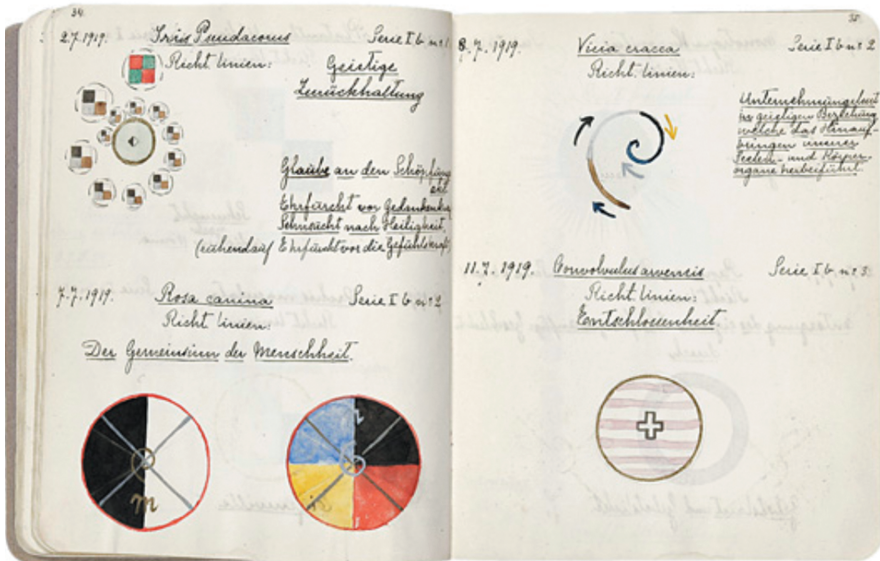 34.
2.7.1919. Iris Pseudacorus Serie I b. nr. 1
Richt linien: Geistige
Zurückhaltung
Glaube an den Schöpfung
Ehrfurcht vor Gedanken
Sehnsucht nach Heiligkeit.
Ehrfurcht vor die Gefühlskraft)
7.7.1919. Rosa canina Serie I b nr. 2
Richt linien:
Der Gemeinsinn der Menschheit.
m
35.
8.7.1919. Vicia cracca Serie I b nr 2
Richt. linien:
Unternehmungslust
geistigen Beziehung
welche das Hinauf-
bringen unserer
Seelen- und Körper-
organe herbeiführt.
11.7.1919. Convolvulus arvensis Serie I b. nr. 3.
Richt linien:
Entschlossenheit